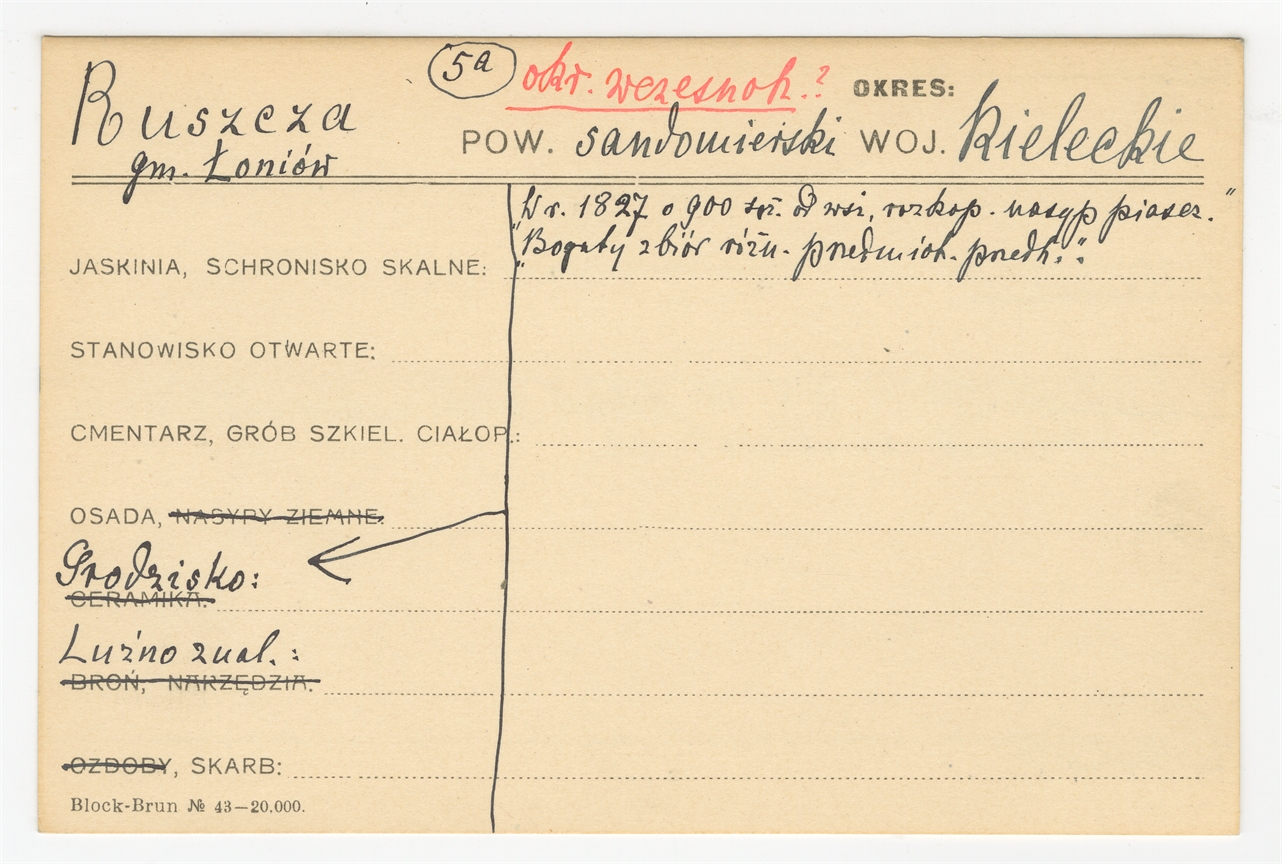 Ruszcza 5a okr. wczesnoh.? OKRES:
gm. Łoniów POW. sandomierski WOJ. Kieleckie
"W r. 1827 o 900 od wsi, rozkop. nasyp piaszcz."
JASKINIA, SCHRONISKO SKALNE: "Bogaty zbiór różn. przedmiot. przedh."
STANOWISKO OTWARTE:
CMENTARZ, GRÓB SZKIEL. CIAŁOP.:
OSADA, NASYPY ZIEMNE:
Grodzisko:
CERAMIKA:
Luźno znal.:
BROŃ, NARZĘDZIA:
OZDOBY, SKARB:
Block-Brun № 43—20,000.